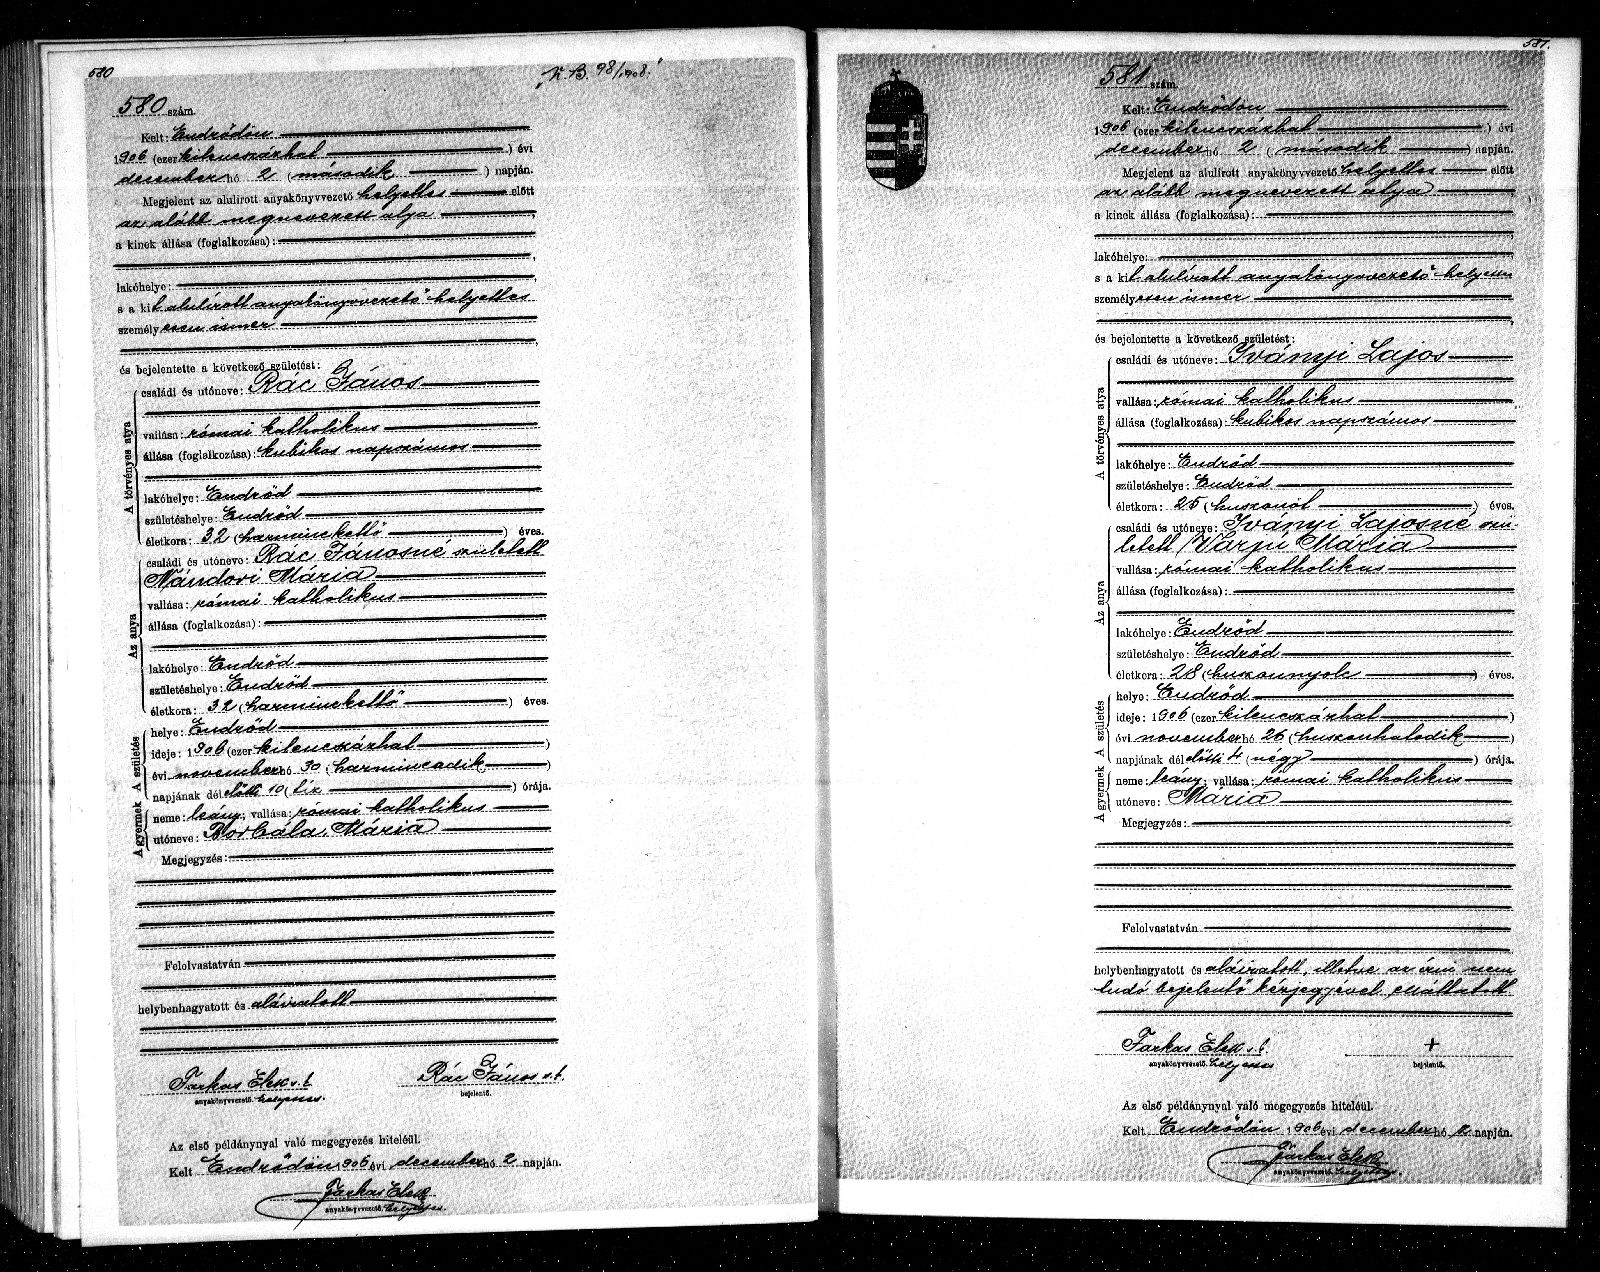 580
K.B. 98/1908.
580 szám.
Kelt: Endrődön
1906 (ezer kilencszázhat) évi
december hó 2 (második) napján.
Megjelent az alulirott anyakönyvvezető helyettes előtt
az alább megnevezett atya
a kinek állása (foglalkozása):
lakóhelye:
s a kit alulírott anyakönyvvezető helyettes
személyesen ismer
és bejelentette a következő születést:
A törvényes atya
családi és utóneve: Rác János
vallása: római katholikus
állása (foglalkozása): kubikos napszámos
lakóhelye: Endrőd
születéshelye: Endrőd
életkora: 32 (harminckettő) éves.
Az anya
családi és utóneve: Rác Jánosné született
Nándori Mária
vallása: római katholikus
állása (foglalkozása):
lakóhelye: Endrőd
születéshelye: Endrőd
életkora: 32 (harminckettő) éves.
A születés
helye: Endrőd
ideje: 1906 (ezer kilencszázhat)
évi november hó 30 (harmincadik)
napjának dél előtti 10 (tíz) órája.
A gyermek
neme: leány; vallása: római katholikus
utóneve: Borbála, Mária
Megjegyzés:
Felolvastatván
helybenhagyatott és aláiratott
Farkas Elek s.k.
anyakönyvvezető. helyettes.
Rác János s.k.
bejelentő.
Az első példánynyal való megegyezés hiteléül.
Kelt Endrődön 1906 évi december hó 2 napján.
Farkas Elek
anyakönyvvezető. helyettes
581.
581 szám.
Kelt: Endrődön
1906 (ezer kilencszázhat) évi
december hó 2 (második) napján.
Megjelent az alulirott anyakönyvvezető helyettes előtt
az alább megnevezett atya
a kinek állása (foglalkozása):
lakóhelye:
s a kit alulírott anyakönyvvezető helyettes
személyesen ismer
és bejelentette a következő születést:
A törvényes atya
családi és utóneve: Iványi Lajos
vallása: római katholikus
állása (foglalkozása): kubikos napszámos
lakóhelye: Endrőd
születéshelye: Endrőd
életkora: 25 (huszonöt) éves.
Az anya
családi és utóneve: Iványi Lajosné szü-
letett Varjú Mária
vallása: római katholikus
állása (foglalkozása):
lakóhelye: Endrőd
születéshelye: Endrőd
életkora: 28 (huszonnyolc) éves.
A születés
helye: Endrőd
ideje: 1906 (ezer kilencszázhat)
évi november hó 26 (huszonhatodik)
napjának dél előtti 4 (négy) órája.
A gyermek
neme: leány; vallása: római katholikus
utóneve: Mária
Megjegyzés:
Felolvastatván
helybenhagyatott és aláiratott, illetve az írni nem
tudó bejelentő kézjegyével elláttatott
Farkas Elek s.k.
anyakönyvvezető. helyettes
+
bejelentő.
Az első példánynyal való megegyezés hiteléül.
Kelt Endrődön 1906 évi december hó 2 napján.
Farkas Elek
anyakönyvvezető. helyettes.